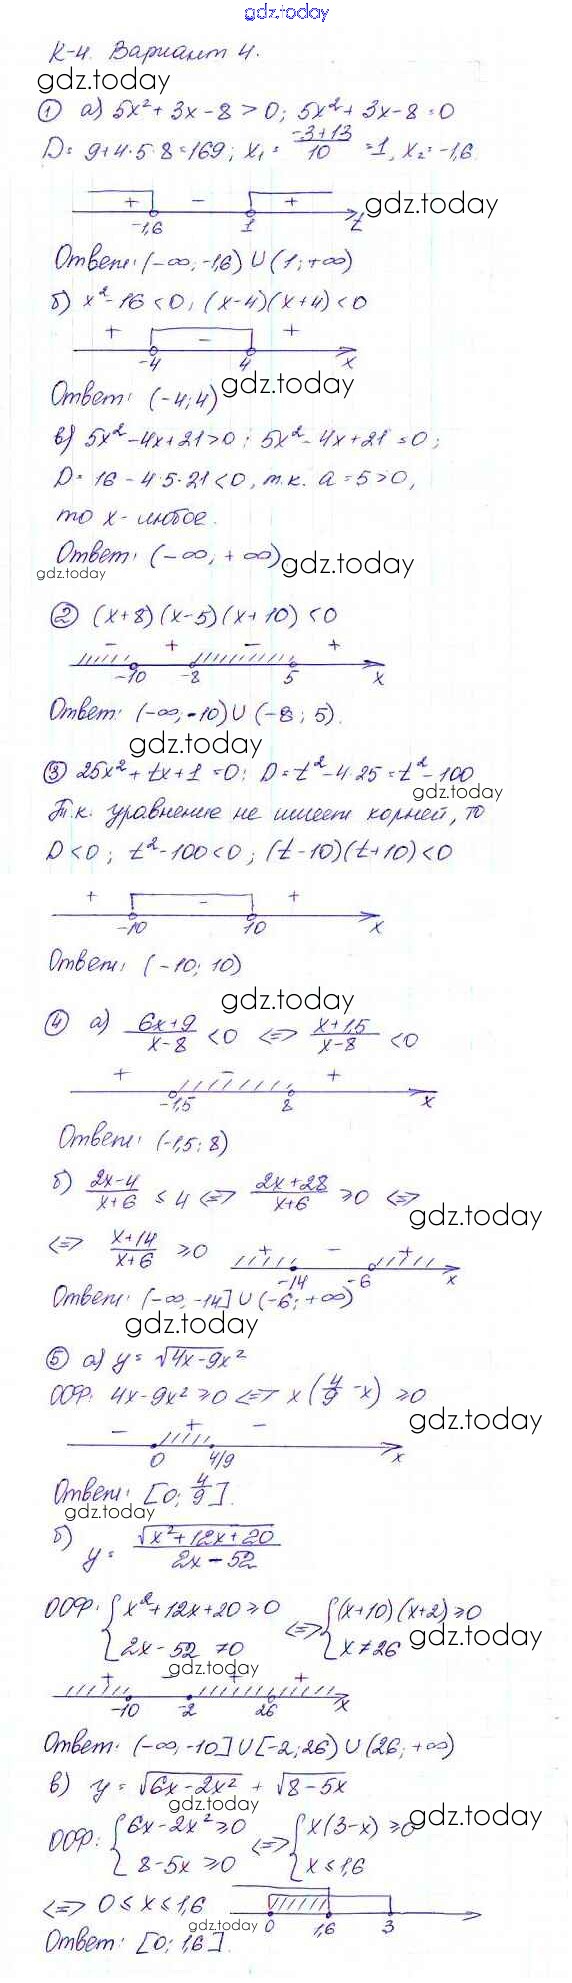 gdz.today
К-4. Вариант 4.
gdz.today
① а) 5x² + 3x - 8 > 0; 5x² + 3x - 8 = 0
D = 9+4·5·8=169; x₁ = (-3+13)/10 = 1, x₂ = -1,6.
+ - +
gdz.today
-1,6 1 t
Ответ: (-∞; -1,6) ∪ (1; +∞)
б) x² - 16 < 0; (x-4)(x+4) < 0
+ - +
-4 4 x
Ответ: (-4; 4)
gdz.today
в) 5x² - 4x + 21 > 0; 5x² - 4x + 21 = 0;
D = 16 - 4·5·21 < 0, т.к. a = 5 > 0,
то x - любое.
Ответ: (-∞; +∞)
gdz.today gdz.today
② (x+8)(x-5)(x+10) < 0
- + - +
-10 -8 5 x
Ответ: (-∞; -10) ∪ (-8; 5).
gdz.today
③ 25x² + tx + 1 = 0; D = t² - 4·25 = t² - 100
gdz.today
Т.к. уравнение не имеет корней, то
D < 0; t² - 100 < 0; (t-10)(t+10) < 0
+ - +
-10 10 x
Ответ: (-10; 10)
gdz.today
④ а) (6x+9)/(x-8) < 0 <=> (x+1,5)/(x-8) < 0
+ - +
-1,5 8 x
Ответ: (-1,5; 8)
б) (2x-4)/(x+6) ≤ 4 <=> (2x+28)/(x+6) ≥ 0 <=>
gdz.today
<=> (x+14)/(x+6) ≥ 0
+ - +
-14 -6 x
Ответ: (-∞; -14] ∪ (-6; +∞)
gdz.today
⑤ а) y = √(4x-9x²)
ООФ: 4x - 9x² ≥ 0 <=> x(4/9 - x) ≥ 0
gdz.today
- + -
0 4/9 x
Ответ: [0; 4/9].
gdz.today
б) y = √(x²+12x+20)/(2x-52)
ООФ: { x² + 12x + 20 ≥ 0 <=> { (x+10)(x+2) ≥ 0
2x - 52 ≠ 0 x ≠ 26
gdz.today
gdz.today
+ - + +
-10 -2 26 x
Ответ: (-∞; -10] ∪ [-2; 26) ∪ (26; +∞)
в) y = √(6x-2x²) + √(8-5x)
gdz.today gdz.today
ООФ: { 6x - 2x² ≥ 0 <=> { x(3-x) ≥ 0
8 - 5x ≥ 0 x ≤ 1,6
<=> 0 ≤ x ≤ 1,6
0 1,6 3
gdz.today
Ответ: [0; 1,6].